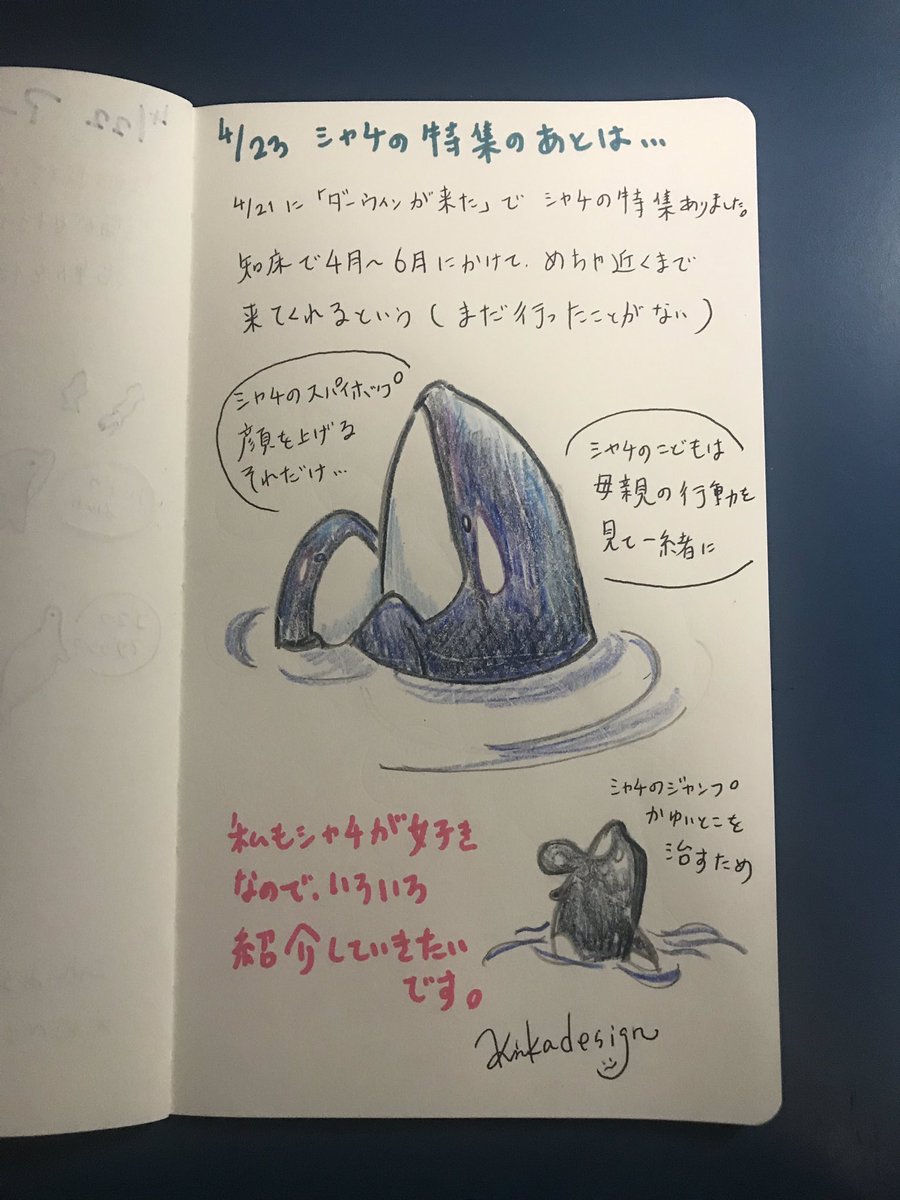 4/23 シャチの特集のあとは…
4/21に「ダーウィンが来た」で シャチの特集ありました。
知床で4月〜6月にかけて、めちゃ近くまで
来てくれるという(まだ行ったことがない)
シャチのスパイホップ
顔を上げる
それだけ…
シャチのこどもは
母親の行動を
見て一緒に
シャチのジャンプ
かゆいとこを
治すため
私もシャチが好き
なので、いろいろ
紹介していきたい
です。
Kinkadesign
4/22